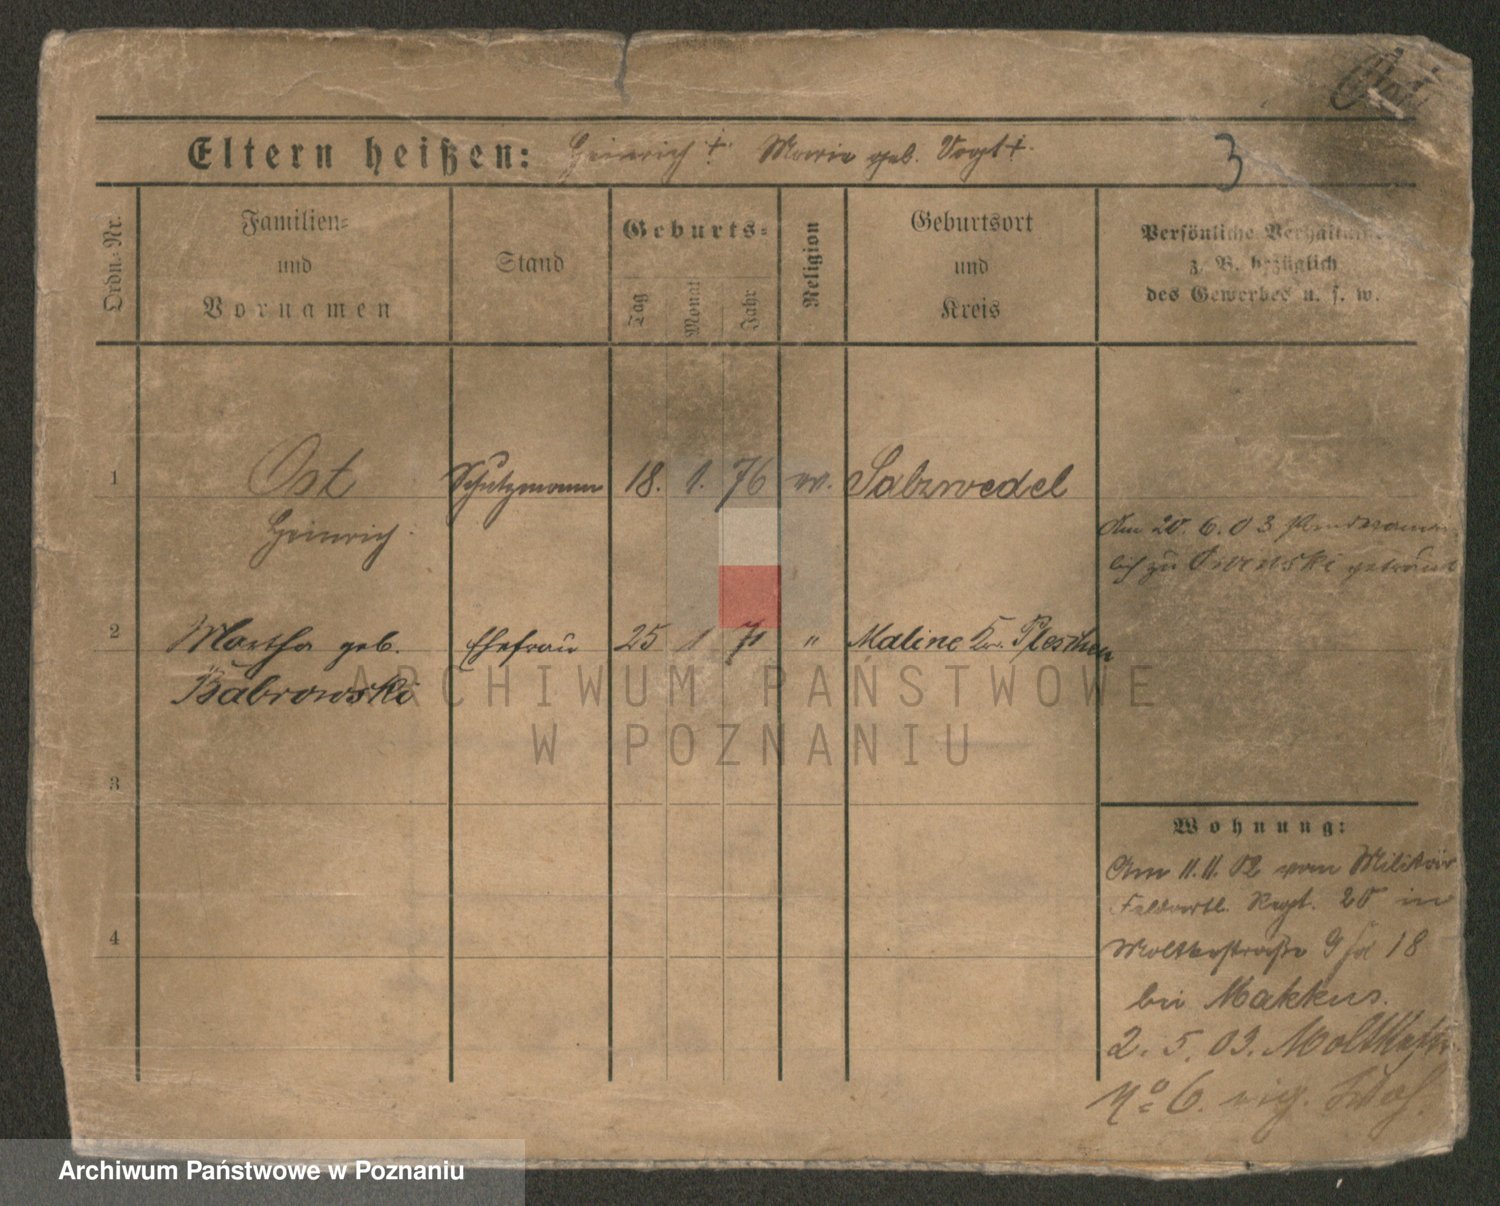 Ost
Eltern heißen: Heinrich †. Marie geb. Vogt †.
3
Ordn.-Nr.
Familien-
und
Vornamen
Stand
Geburts-
Tag
Monat
Jahr
Religion
Geburtsort
und
Kreis
Persönliche Verhältnisse
z. B. bezüglich
des Gewerbes u. s. w.
1 Ost Schutzmann 18. 1. 76 ev. Salzwedel
Heinrich
Am 20. 6. 03
lich zu Owinski getraut
2 Martha geb. Ehefrau 25 1 71 " Maline Kr. Pleschen
Babrowski
3
Wohnung:
Am 11. 11. 02 vom Militär
Feldartl. Regt. 20 in
4
Moltkestraße 9 18
bei Makkus.
2. 5. 03. Moltkestr.
No 6. eig.
ARCHIWUM PAŃSTWOWE
W POZNANIU
Archiwum Państwowe w Poznaniu